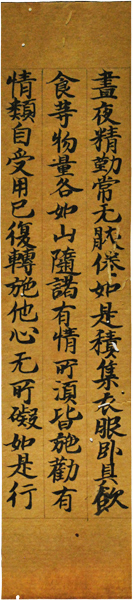 晝夜精勤常无厭倦如是積集衣服卧具飲
食等物量各如山隨諸有情所須皆施勸有
情類自受用已復轉施他心无所礙如是行